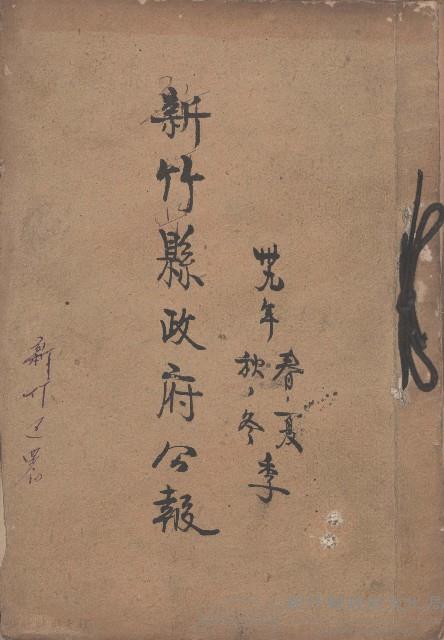 新竹縣政府公報
卅九年
春、夏
秋、冬
季